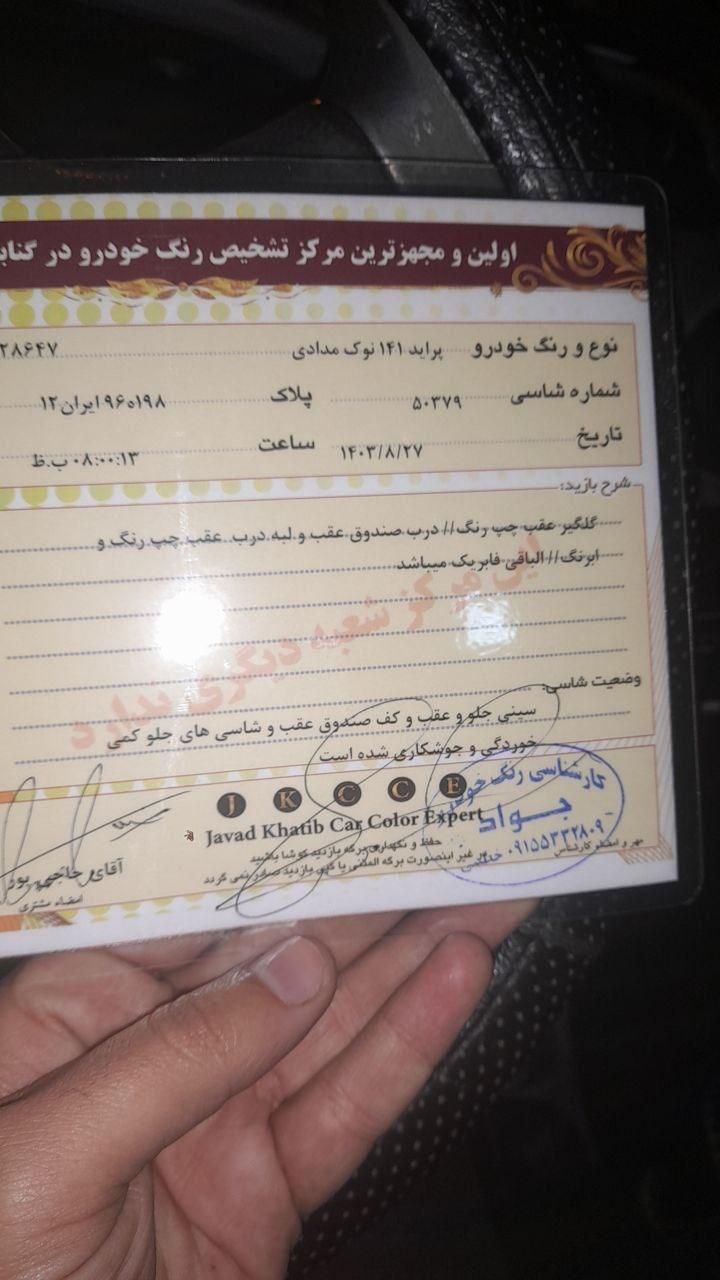 اولین و مجهزترین مرکز تشخیص رنگ خودرو در گناب
نوع و رنگ خودرو پراید ۱۴۱ نوک مدادی ۲۸۶۴۷
شماره شاسی ۵۰۳۷۹ پلاک ۹۶۰۱۹۸ ایران۱۲
تاریخ ۱۴۰۳/۸/۲۷ ساعت ۰۸:۰۰:۱۳ ب.ظ
شرح بازید:
گلگیر عقب چپ رنگ// درب صندوق عقب و لبه درب عقب چپ رنگ و
ابرنگ// الباقی فابریک میباشد
این مرکز شعبه دیگری ندارد
وضعیت شاسی:
سینی جلو و عقب و کف صندوق عقب و شاسی های جلو کمی
خوردگی و جوشکاری شده است
J K C C E
Javad Khatib Car Color Expert
حفظ و نگهداری برگه بازدید کوشا باشید
در غیر اینصورت برگه المثنی یا کپی بازدید صادر نمی گردد
کارشناسی رنگ خودرو
جواد
۰۹۱۵۵۳۳۲۸۰۹
مهر و امضاء کارشناس
آقای حاجی پور
امضاء مشتری